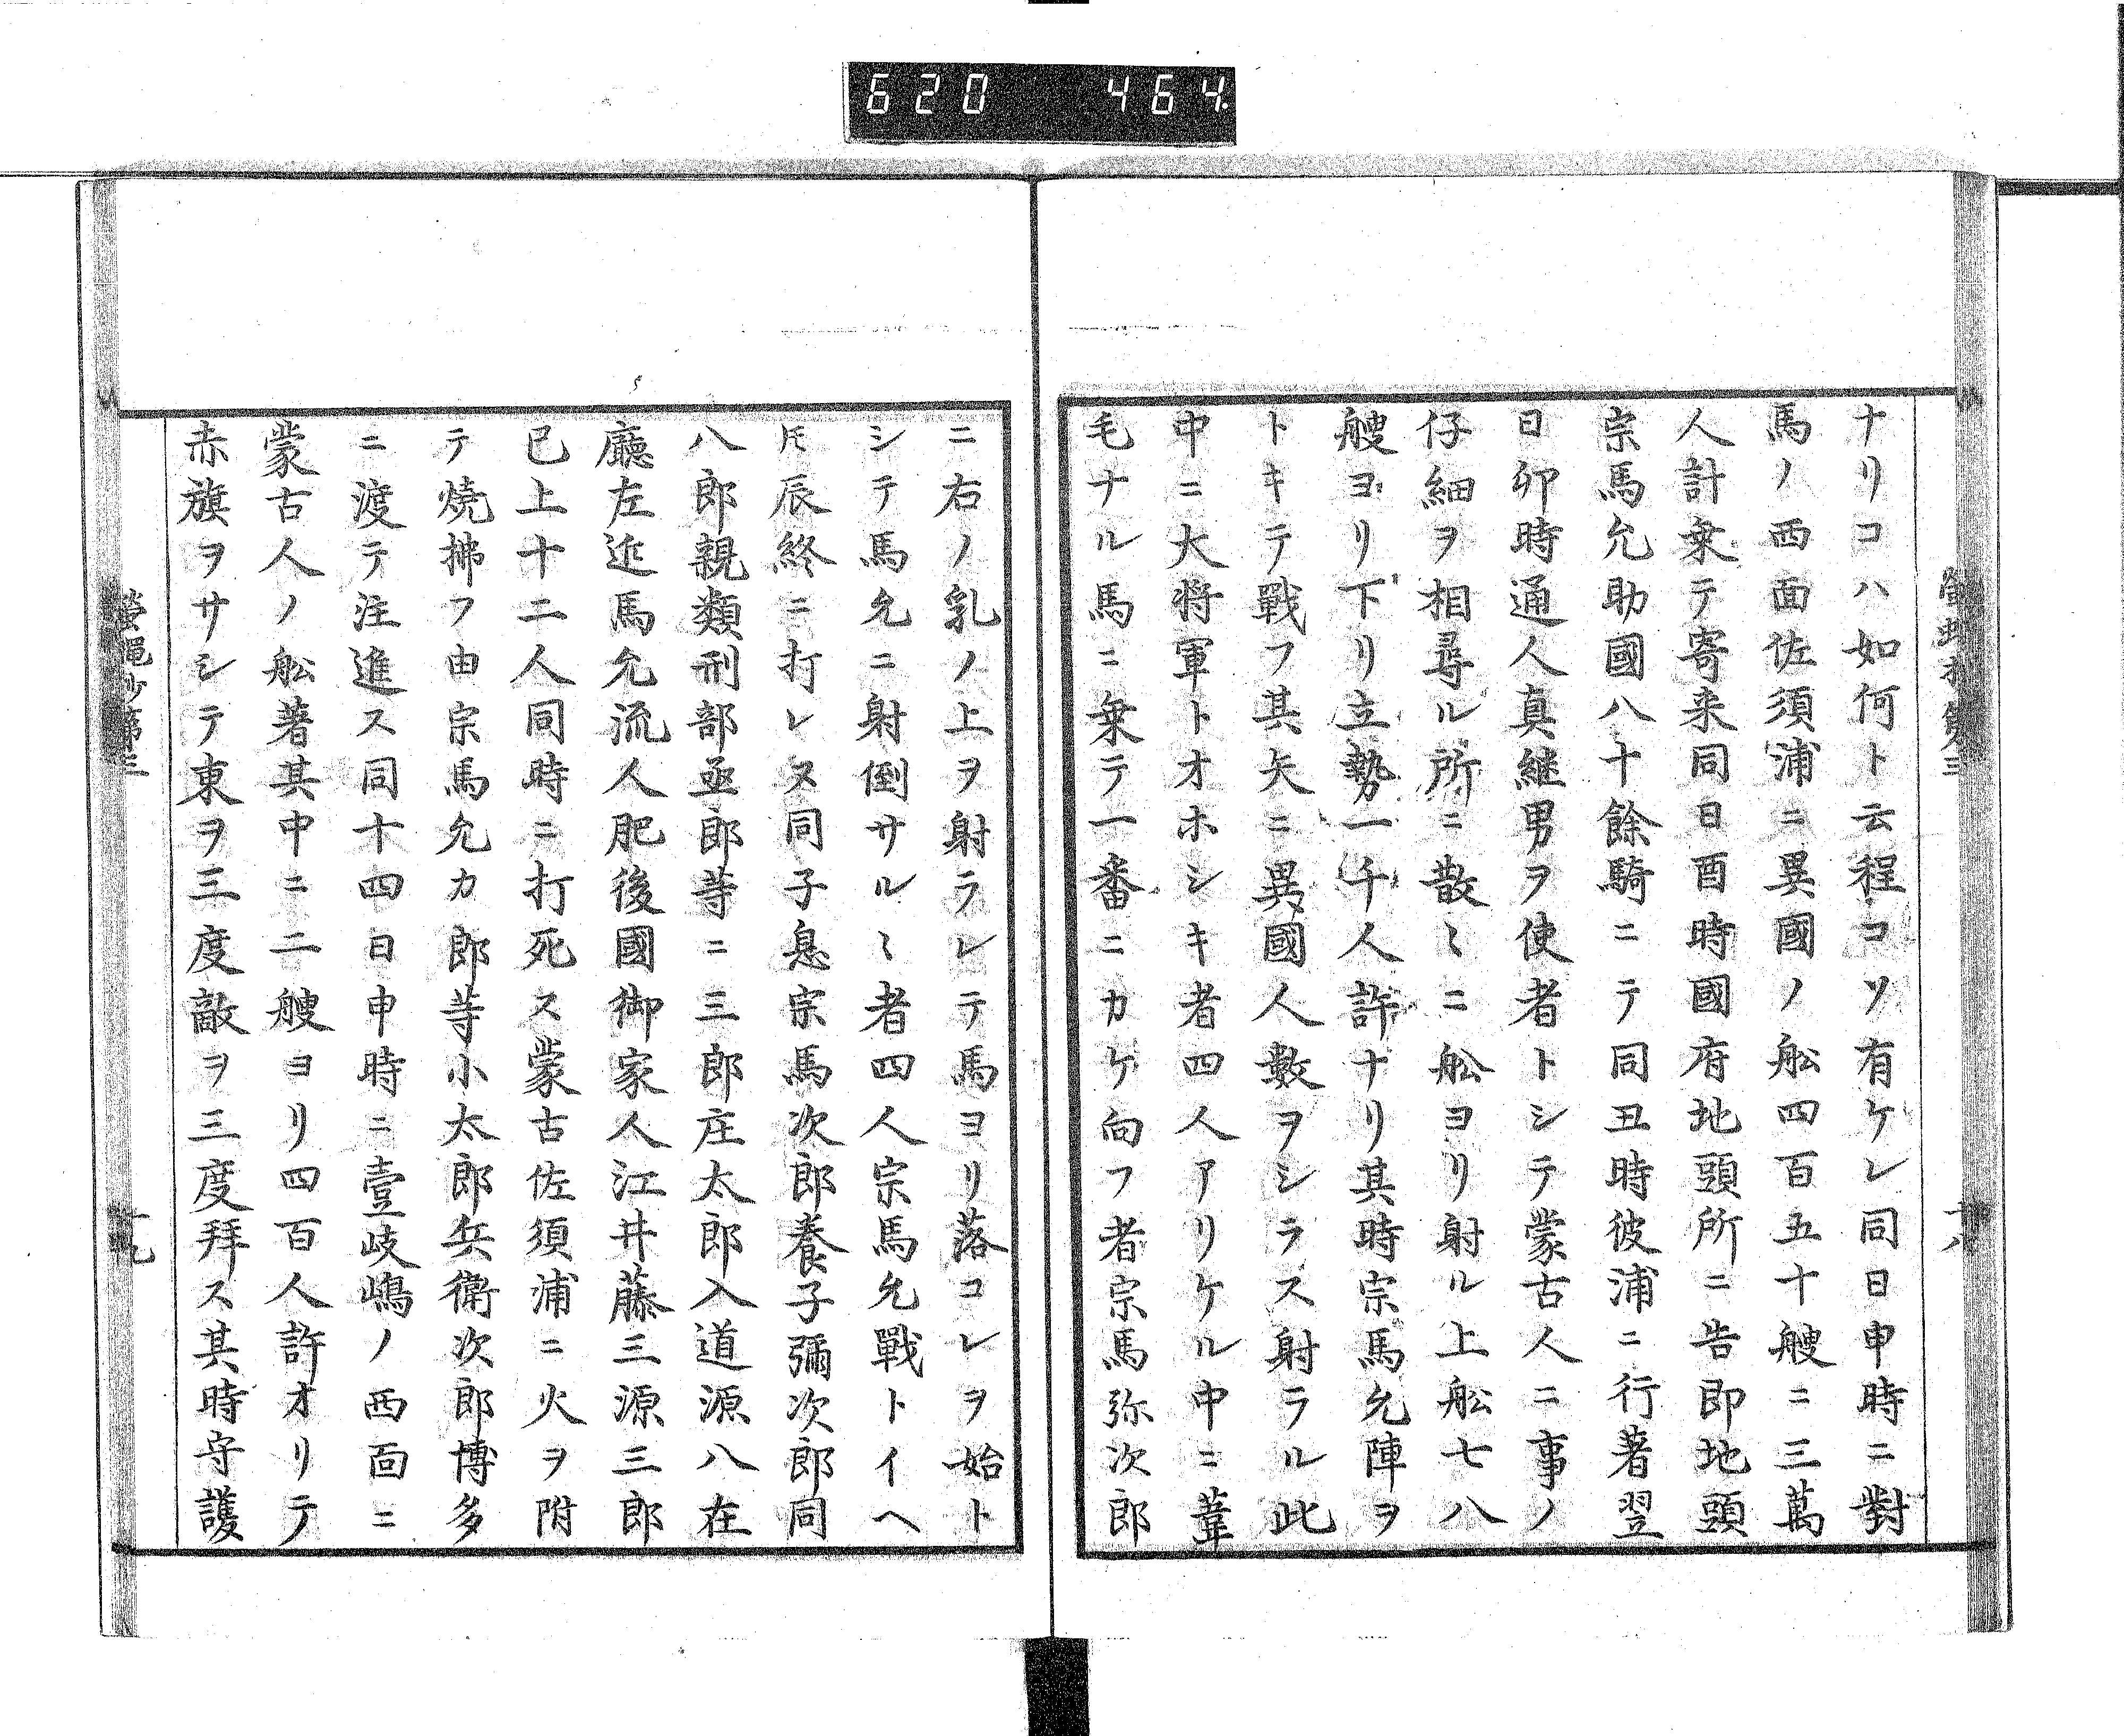 620 464.
ナリコハ如何ト云程コソ有ケレ同日申時ニ對
馬ノ西面佐須浦ニ異國ノ舩四百五十艘ニ三萬
人計乗テ寄来同日酉時國府地頭所ニ告即地頭
宗馬允助國八十餘騎ニテ同丑時彼浦ニ行著翌
日卯時通人真継男ヲ使者トシテ蒙古人ニ事ノ
仔細ヲ相尋ル所ニ散〻ニ舩ヨリ射ル上舩七八
艘ヨリ下リ立勢一千人許ナリ其時宗馬允陣ヲ
トキテ戰フ其矢ニ異國人數ヲシラス射ラル此
中ニ大将軍トオホシキ者四人アリケル中ニ葦
毛ナル馬ニ乗テ一番ニカケ向フ者宗馬弥次郎
ニ右ノ乳ノ上ヲ射ラレテ馬ヨリ落コレヲ始ト
シテ馬允ニ射倒サルヽ者四人宗馬允戰トイヘ
𪜈辰終ニ打レヌ同子息宗馬次郎養子彌次郎同
八郎親類刑部丞郎等ニ三郎庄太郎入道源八在
廳左近馬允流人肥後國御家人江井藤三源三郎
已上十二人同時ニ打死ス蒙古佐須浦ニ火ヲ附
テ焼拂フ由宗馬允カ郎等小太郎兵衛次郎博多
ニ渡テ注進ス同十四日申時ニ壹岐嶋ノ西面ニ
蒙古人ノ舩著其中ニ二艘ヨリ四百人許オリテ
赤旗ヲサシテ東ヲ三度敵ヲ三度拜ス其時守護
螢蠅抄第三
十九